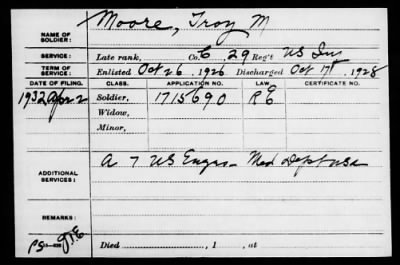 NAME OF SOLDIER: Moore, Troy M
SERVICE: Late rank, Co. C, 29 Reg't US Inf
TERM OF SERVICE: Enlisted Oct 26, 1926 Discharged Oct 17, 1928
DATE OF FILING. CLASS. APPLICATION NO. LAW. CERTIFICATE NO.
1932 Apr 2 Soldier, 1715690 RE
Widow,
Minor,
ADDITIONAL SERVICES: A 7 US Engrs - Med Dept USA
REMARKS:
Died , 1 , at